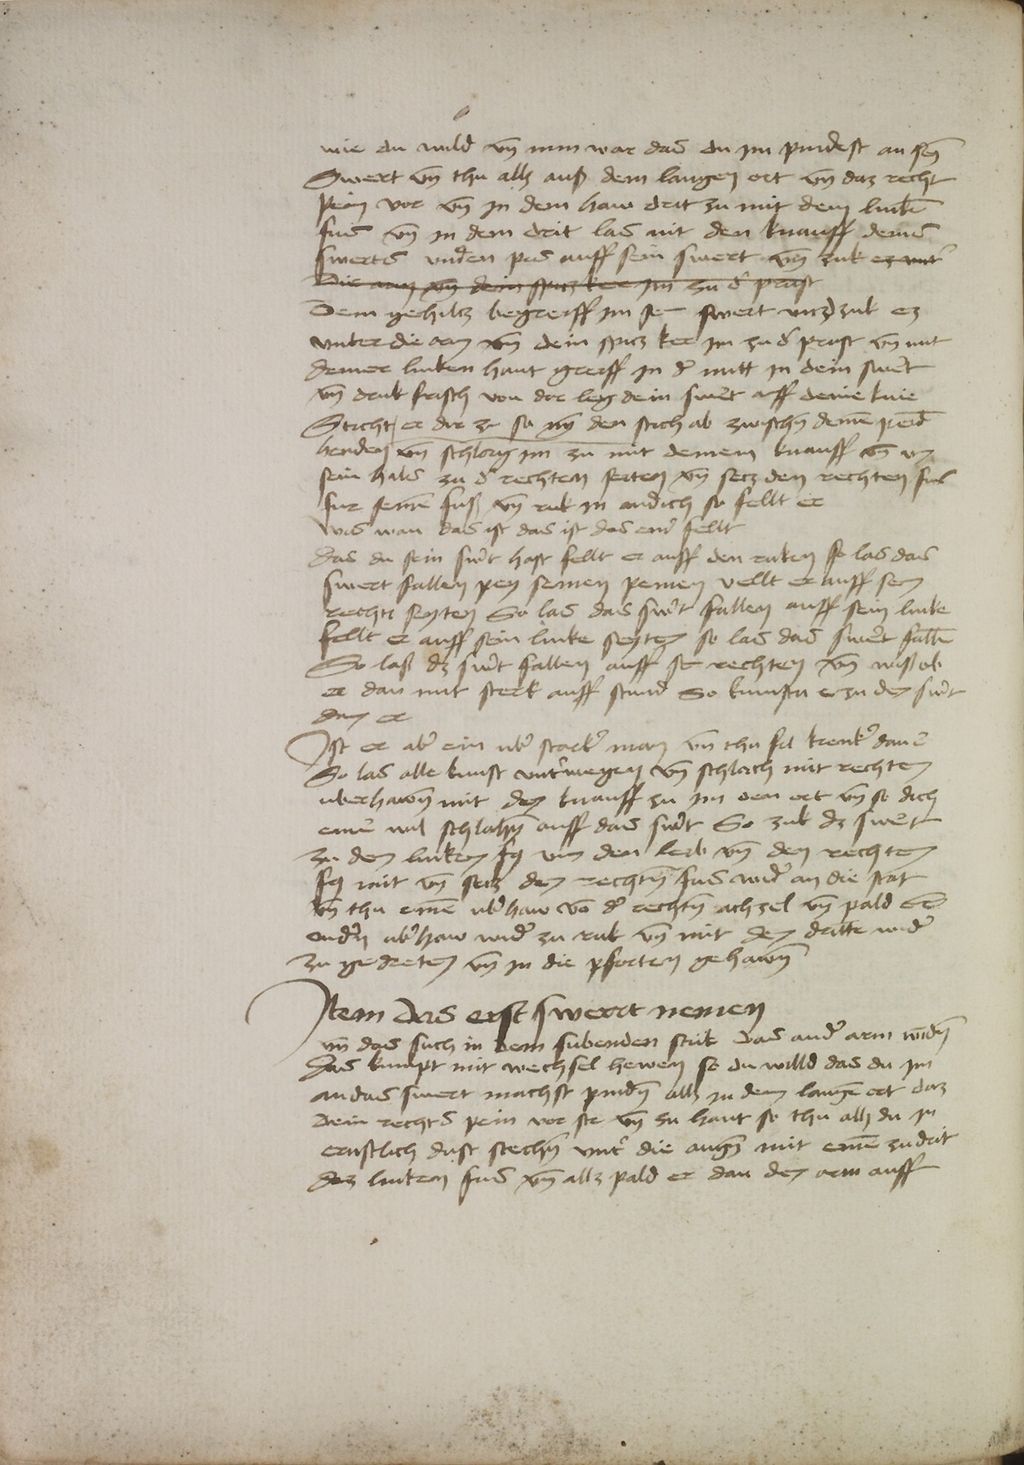 wie du wild vn̄ nim war das du im pindest an sey̅
Swert vn̄ thu alls auß dem langen ort vn̄ daz recht
pein vor vn̄ in dem haw drit zu mit dem linkē
fus vn̄ in dem drit las mit den knauff deins
swertz vnden pas auff sein swert vn̄ zuk ez vnt̉
Die arm vn̄ dein spicz ker im zu d̉ prust
Dem gehilcz begreiff im swert vnd zuk ez
vnter die arm vn̄ dein spicz ker im zu d̉ prust vn̄ mit
deiner linken hant greiff in d̉ mitt in dein swert
vn̄ druk frisch von dir leg dein swert auff deine knie
Sticht er dir zu so nym den stich ab zwischn̄ deinē peid
henden vn̄ schlach im zu mit deinem knauff vm
sein hals zu d̉ rechten seiten vn̄ secz den rechten fus
fur seinē fuß vn̄ ruk in an dich so fellt er
was wan das ist das ist das einr fellt
das du sein swert hast fellt er auff den ruken so las das
swert fallen pey seinen peinen vellt er auff sein
rechte seyten So las das swert fallen auff sein linke
fellt er auff sein linke seyten so las das swert fallē
So laß dz swert fallen auff rechten vn̄ wiß ob
er dan mit sterk auff stund So kumstu er zu dem swert
dan er
Ist er aber ein vber starker man vn̄ thu fil krenker dan
So las alle kunst vnterwegen vn̄ schlach mit rechten
vberhawn̄ mit dem knauff zu im ort vn̄ so dich
einer wil schlahn̄ auff das swert So zuk dz swert
zu dem linken fus vm den leib vn̄ den rechten
fus mit vn̄ secz den rechtn̄ fus wider an die stat
vn̄ thu einē vberhaw vō d̉ rechtn̄ achzel vn̄ pald
andern vberhaw wider zu ruk vn̄ mit dem dritte wider
zu gedreten vn̄ in die pforten gehawn̄
Item das erst swertt nemen
vn̄ das such in dem subenden stuk das ander arm windn̄
das kumpt mit wechsel hewen so du willd das du im
an das swert machst pindn̄ alls in dem langē ort daz
dein rechts pein vor ste vn̄ zu hant so thu alls du in
ernstlich durst stechn̄ vnter die augn̄ mit einē zu drit
dez linken fus vn̄ alls pald er dan den arm auff